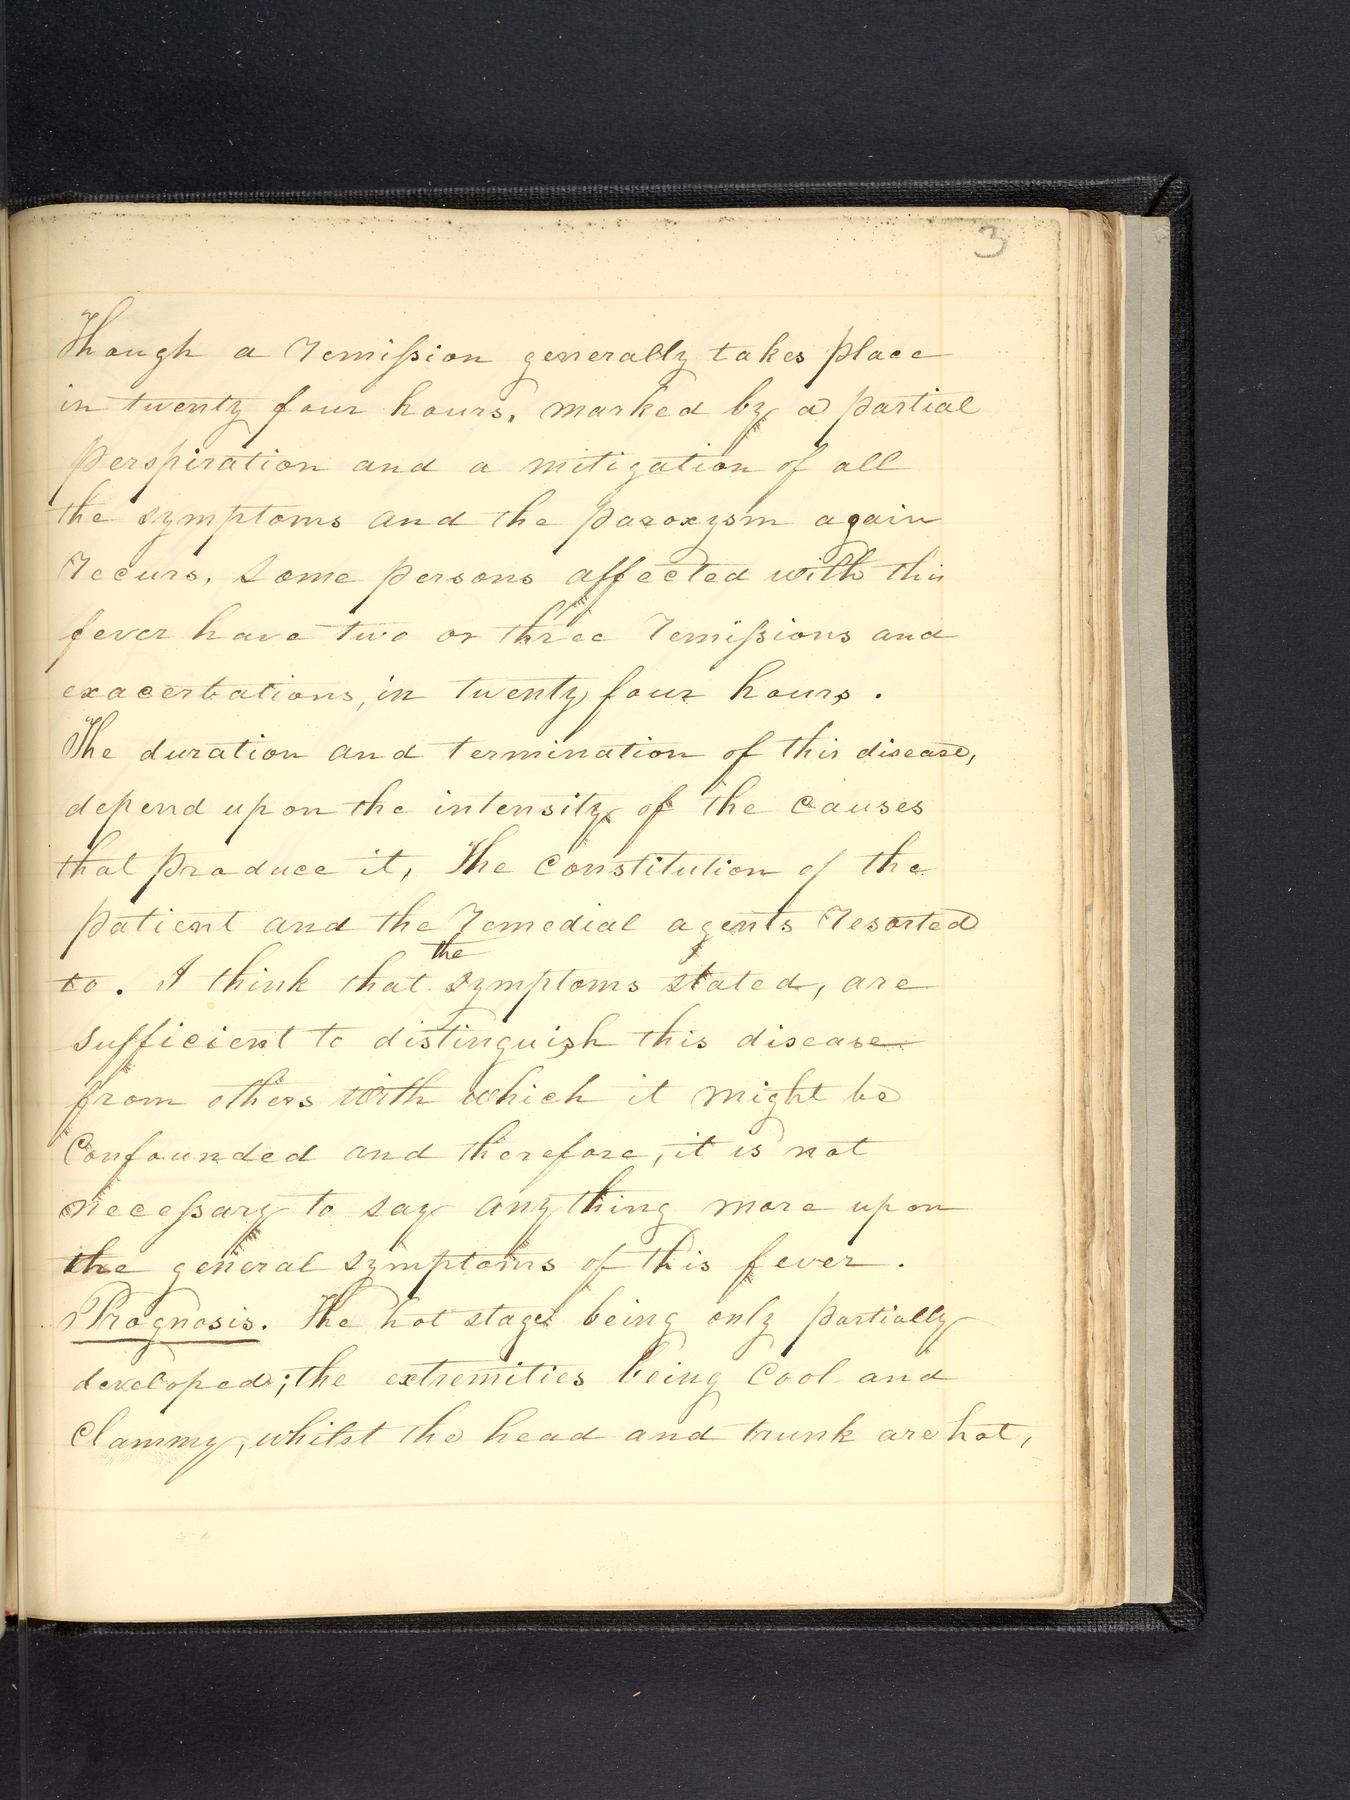 3
Though a remission generally takes place
in twenty four hours, marked by a partial
perspiration and a mitigation of all
the symptoms and the paroxysm again
recurs, Some persons affected with this
fever have two or three remissions and
exacerbations, in twenty four hours.
The duration and termination of this disease,
depend upon the intensity of the causes
that produce it, The Constitution of the
patient and the remedial agents resorted
the
to. I think that symptoms stated, are
sufficient to distinguish this disease
from others with which it might be
Confounded and therefore, it is not
necessary to say any thing more upon
the general symptoms of this fever.
Prognosis. The hot stage being only partially
developed; the extremities being Cool and
Clammy, whilst the head and trunk are hot,